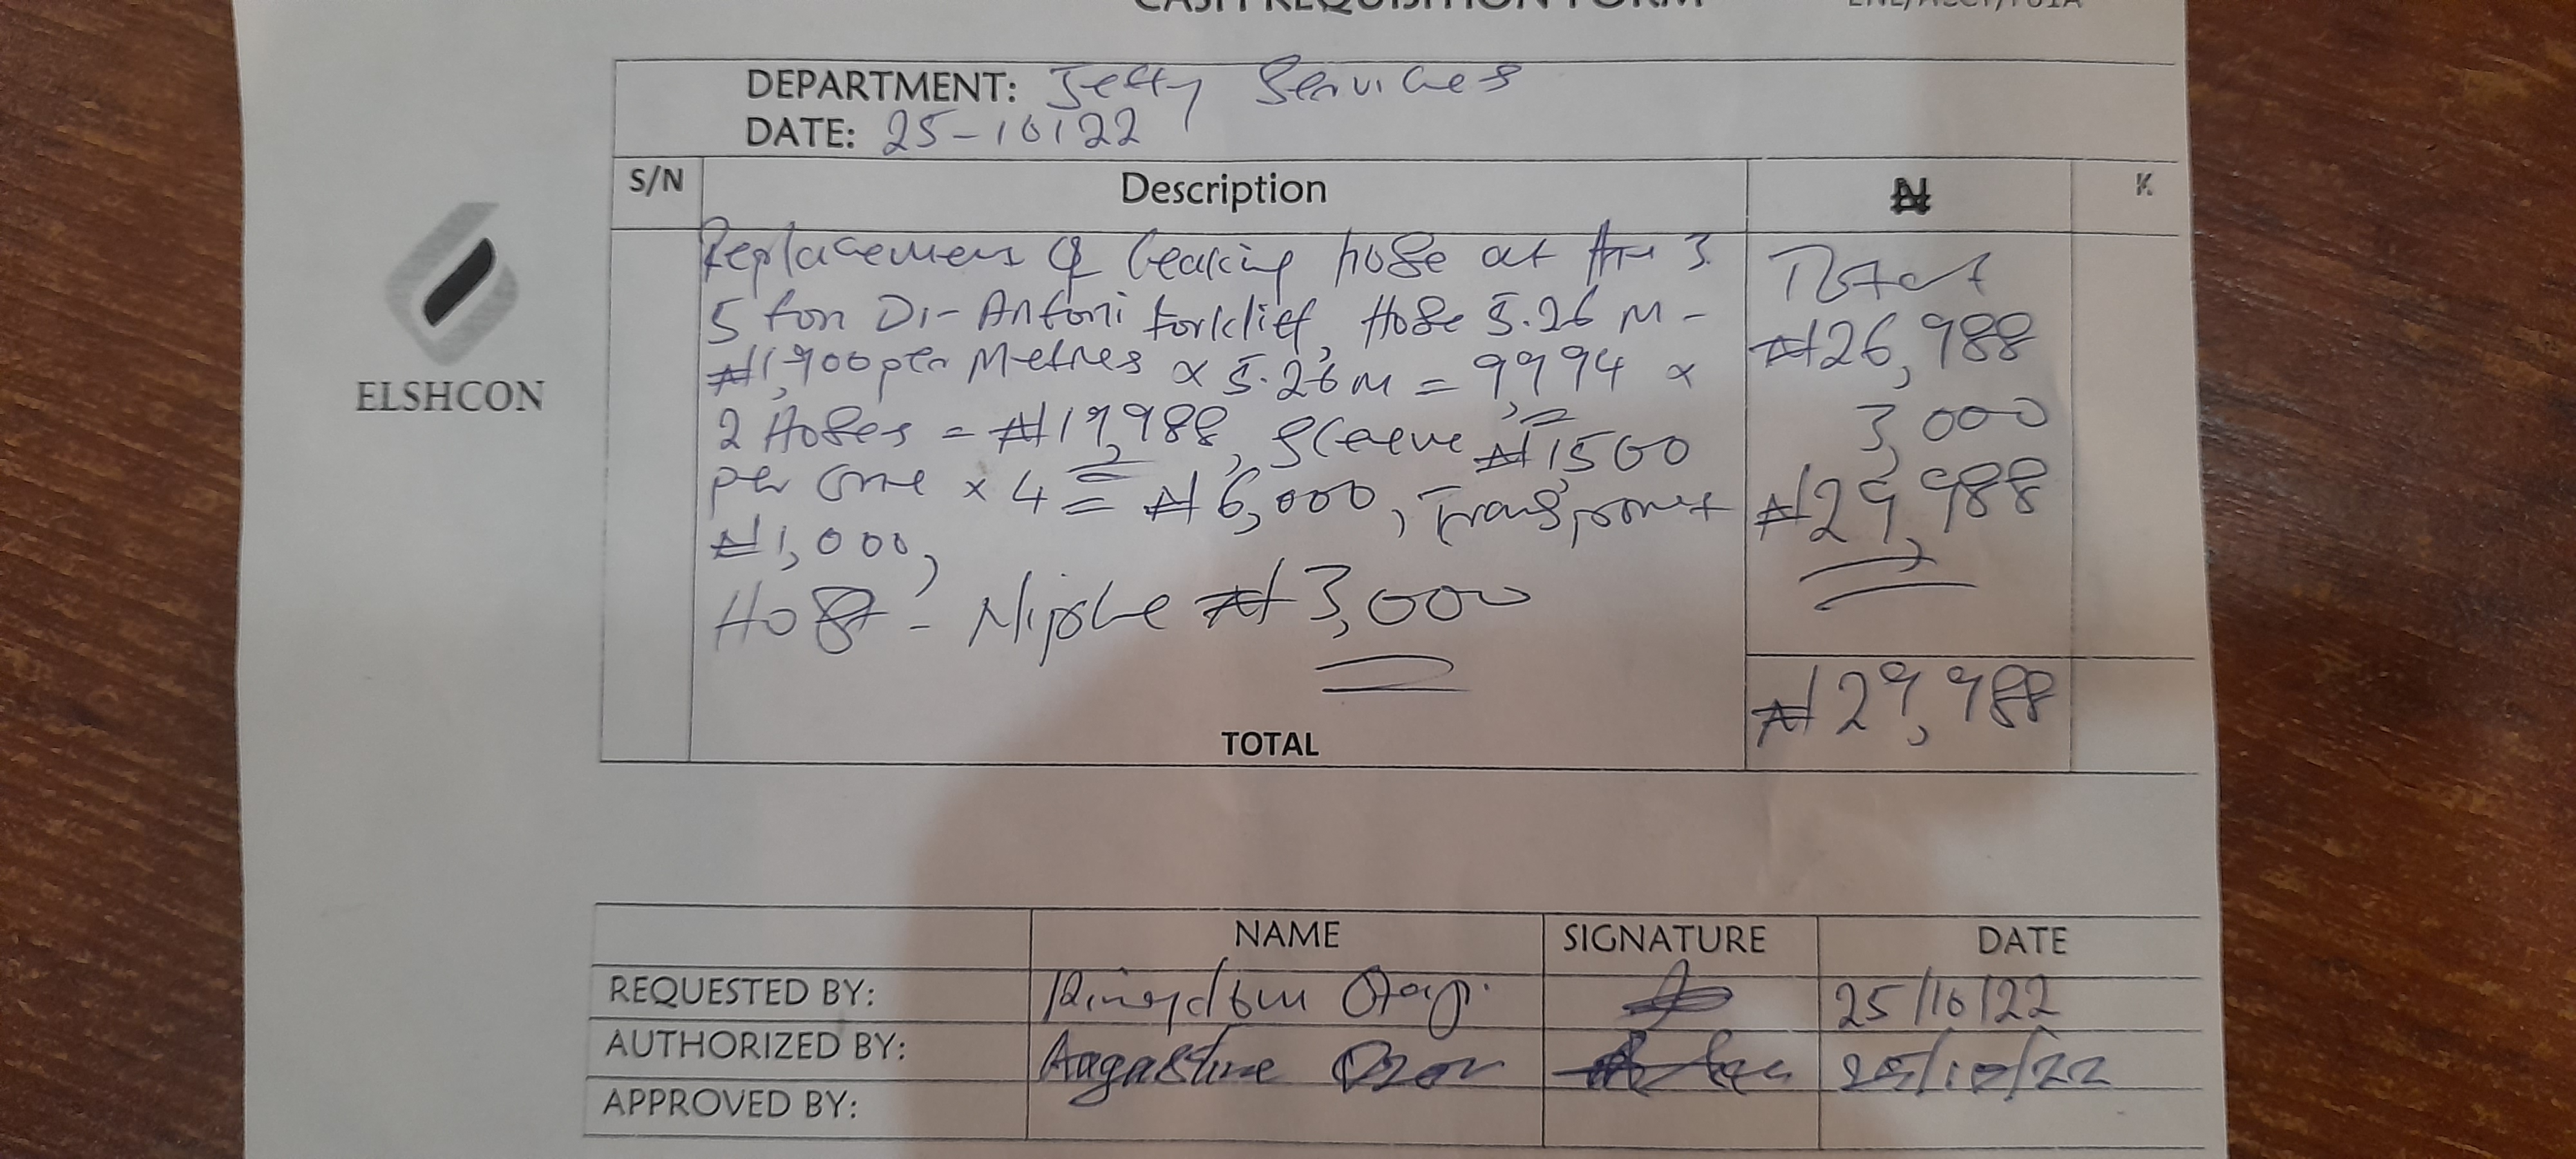 CASH REQUISITION FORM
ENL/ACCT/F01A
DEPARTMENT: Jetty Services
DATE: 25-10/22
S/N Description ₦ K
Replacement of leaking hose at the 3
5 ton Di-Antoni forklift, Hose 5.26 M -
₦1,900 per Metres x 5.26 m = 9,994 x
2 Hoses = ₦19,988, Sleeve ₦1,500
per one x 4 = ₦6,000, Transport
₦1,000,
Hose - Nipple ₦3,000
Total
₦26,988
3,000
₦29,988
TOTAL ₦29,988
ELSHCON
NAME SIGNATURE DATE
REQUESTED BY: Kingdom 25/10/22
AUTHORIZED BY: Augustine 25/10/22
APPROVED BY: